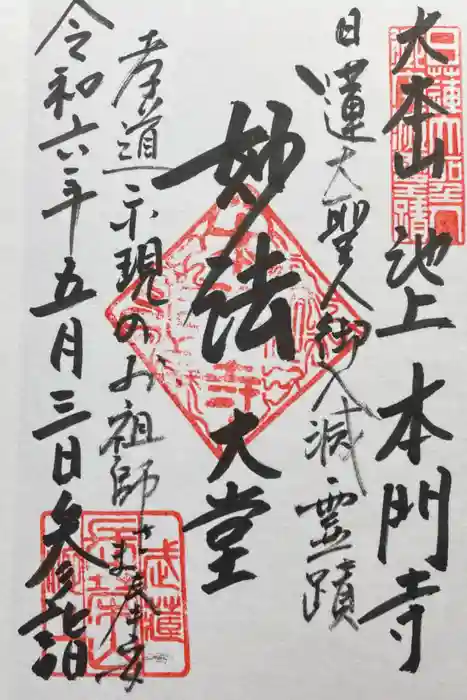 大本山 池上 本門寺
日蓮大聖人御入滅霊蹟
妙法
大堂
孝道示現のお祖師さま奉安
令和六年五月三日参詣